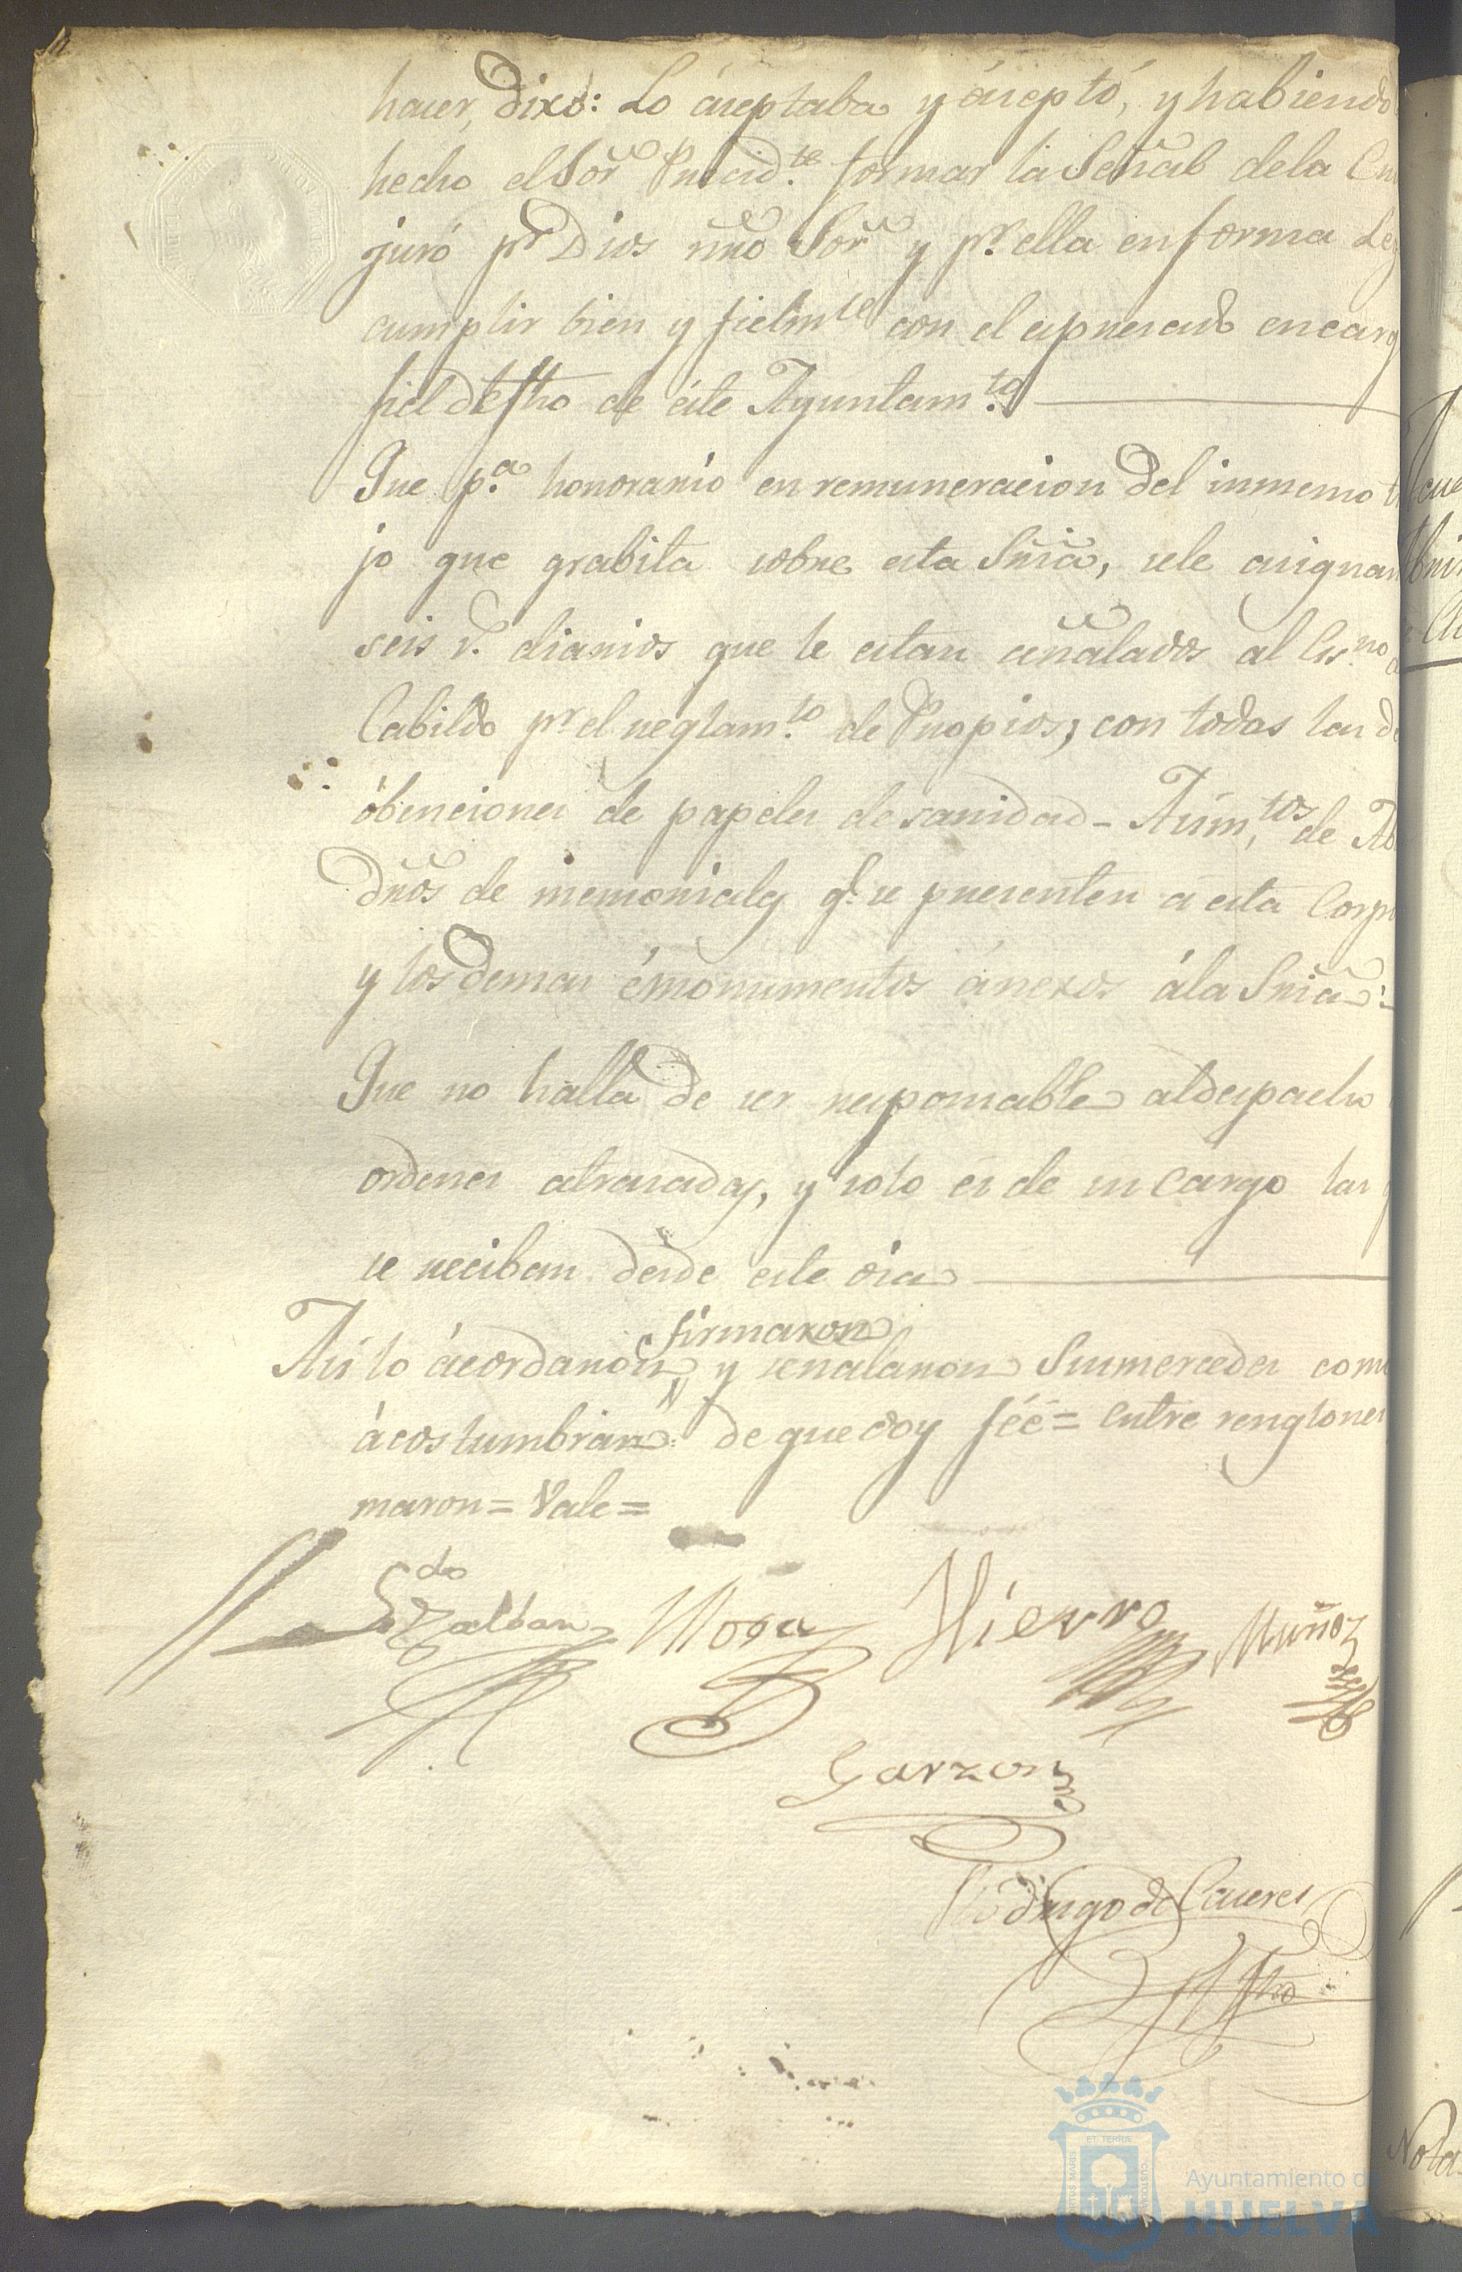 hacer, Dixo: Lo áceptaba y áceptó, y habiendo
hecho el Sor Presid.te formar la Señal dela Cru
juró pr Dios ñro Sor y pr ella en forma Leg
cumplir bien y fielmte con el expresado encarg
fiel de fho de éste Ayuntam.to
Que p.a honorario en remuneracion del inmenso tra
jo que grabita sobre esta Sria, sele asignan
seis r.s diarios que le estan señalados al Es.no de
Cabildo pr el reglam.to de Propios; con todas las d
óbenciones de papeles de sanidad - Asim,tos de
Dros de memoriales q.e se presenten á esta Corpo
y los demas émonumentos ánexos ála Sria
Que no halla de ser responsable al despacho
ordenes atrasadas, y solo és de su cargo las q
se reciban desde este dia
firmaron
Así lo ácordaron, y señalaron Susmercedes como
ácostumbran: de que doy féé = Entre renglones
maron = Vale =
Ldo
Zalban Mora Hierro Muñoz
Garzon
Rodrigo de Caceres
Ayuntamiento de
HUELVA
Nota